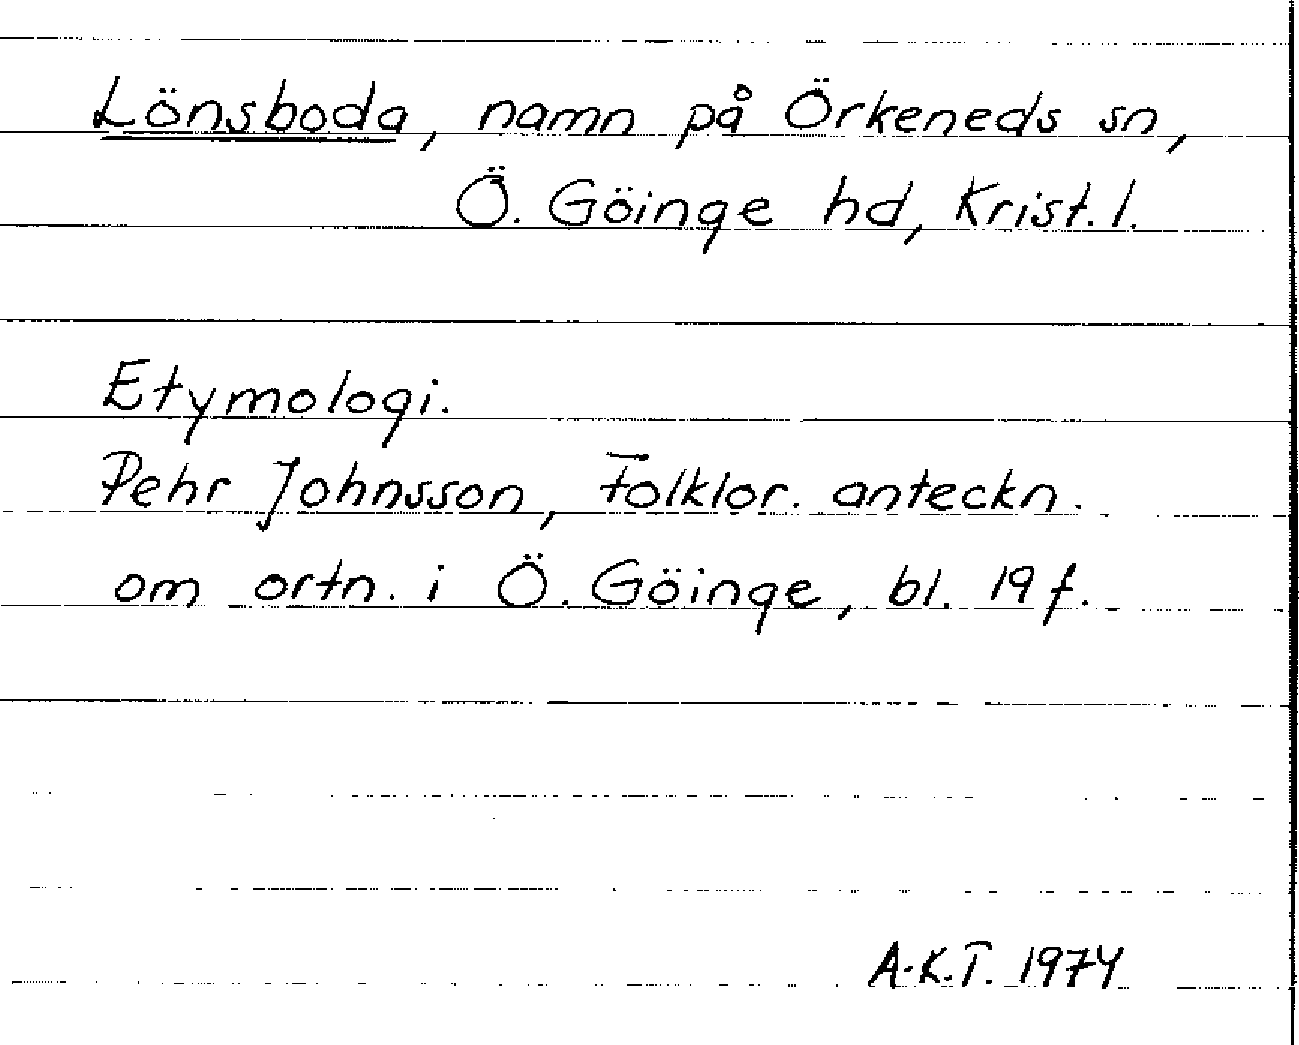 Lönsboda, namn på Örkeneds sn,
Ö. Göinge hd, Krist. l.
Etymologi.
Pehr Johnsson, Folklor. anteckn.
om ortn. i Ö. Göinge, bl. 19 f.
A-K.T. 1974